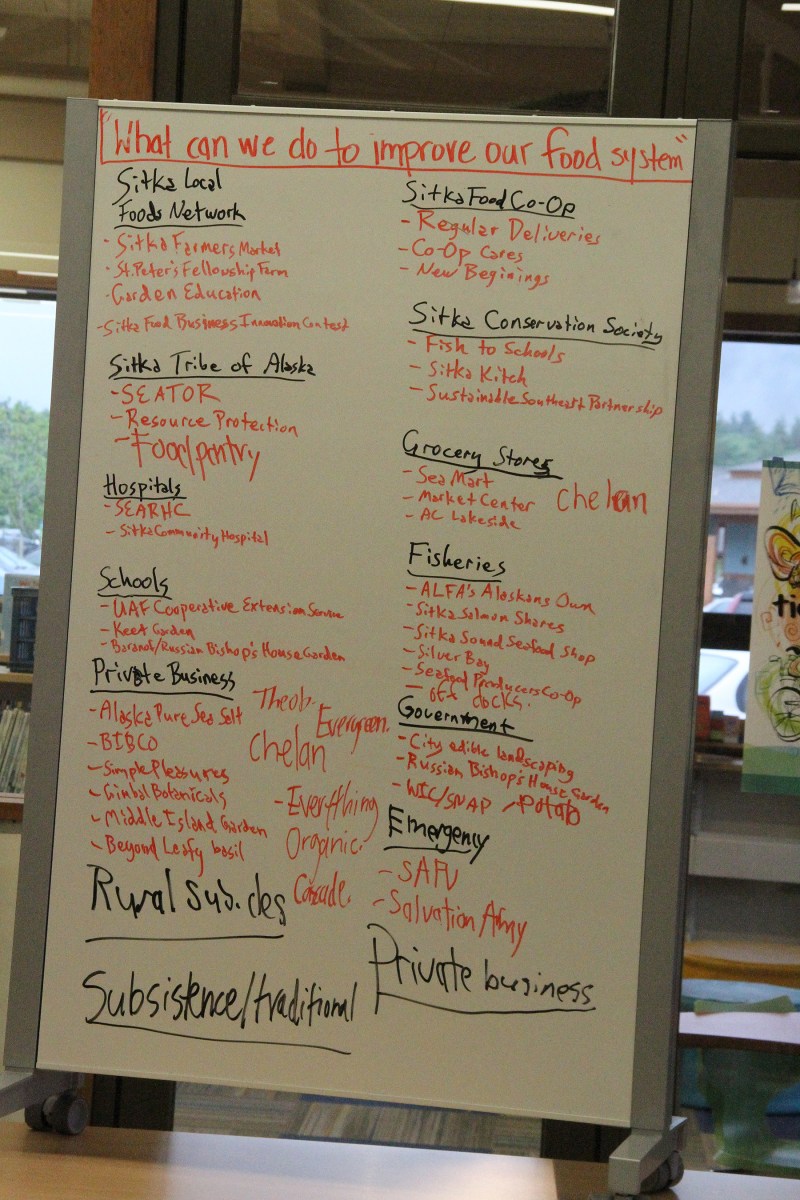 "What can we do to improve our food system"
Sitka Local
Foods Network
- Sitka Farmers Market
- St. Peter's Fellowship Farm
- Garden Education
- Sitka Food Business Innovation Contest
Sitka Tribe of Alaska
- SEATOR
- Resource Protection
- Food/pantry
Hospitals
- SEARHC
- Sitka Community Hospital
Schools
- UAF Cooperative Extension Service
- Keet Garden
- Baranof/Russian Bishop's House Garden
Private Business
- Alaska Pure Sea Salt
- BIBCO
- Simple Pleasures
- Gimbal Botanicals
- Middle Island Garden
- Beyond Leafy basil
Theob.
Evergreen.
Chelan
- Everything
Organic.
Cascade.
Rural Sub.
Subsistence/traditional
Sitka Food Co-Op
- Regular Deliveries
- Co-Op Cares
- New Beginings
Sitka Conservation Society
- Fish to Schools
- Sitka Kitch
- Sustainable Southeast Partnership
Grocery Stores
- Sea Mart
- Market Center
- AC Lakeside
Chelan
Fisheries
- ALFA's Alaskans Own
- Sitka Salmon Shares
- Sitka Sound Seafood Shop
- Silver Bay
- Seafood Producers Co-Op
- off docks.
Government
- City edible landscaping
- Russian Bishop's House Garden
- WIC/SNAP
- Potato
Emergency
- SAFV
- Salvation Army
Private business